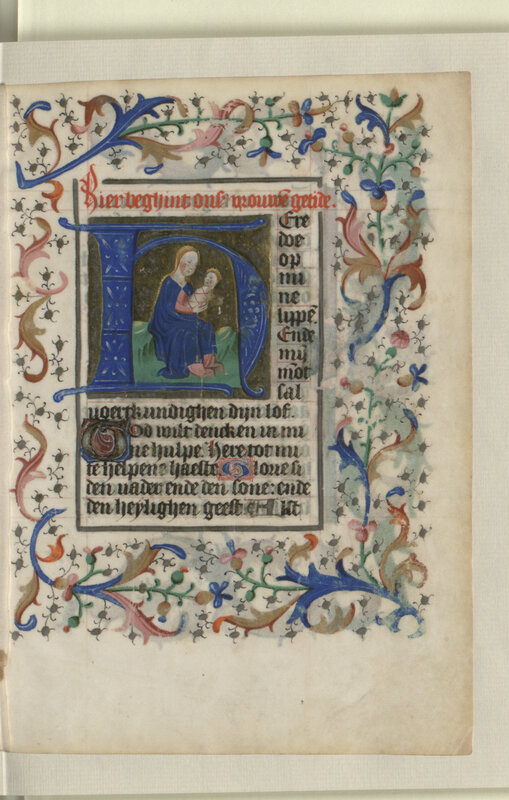 Hier beghint onser vrouwen getide.
HEre
doe
op
mi
ne
lippē
Ende
mij
mōt
sal
vgert kundighen dijn lof.
God wilt dencken in mi
ne hulpe. Here tot mi
te helpen haeste Glorie si
den vader ende den sone: ende
den heylighen geest